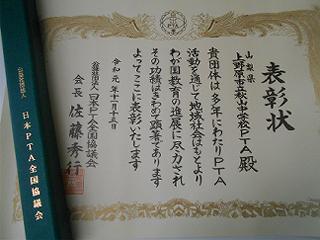 表彰状
山梨県
上野原市立秋山中学校PTA殿
貴団体は多年にわたりPTA
活動を通じて地域社会はもとより
わが国教育の進展に尽力され
その功績はきわめて顕著であります
よってここに表彰いたします
令和元年十一月十五日
公益社団法人日本PTA全国協議会
会長 佐藤秀行
公益社団法人
日本PTA全国協議会